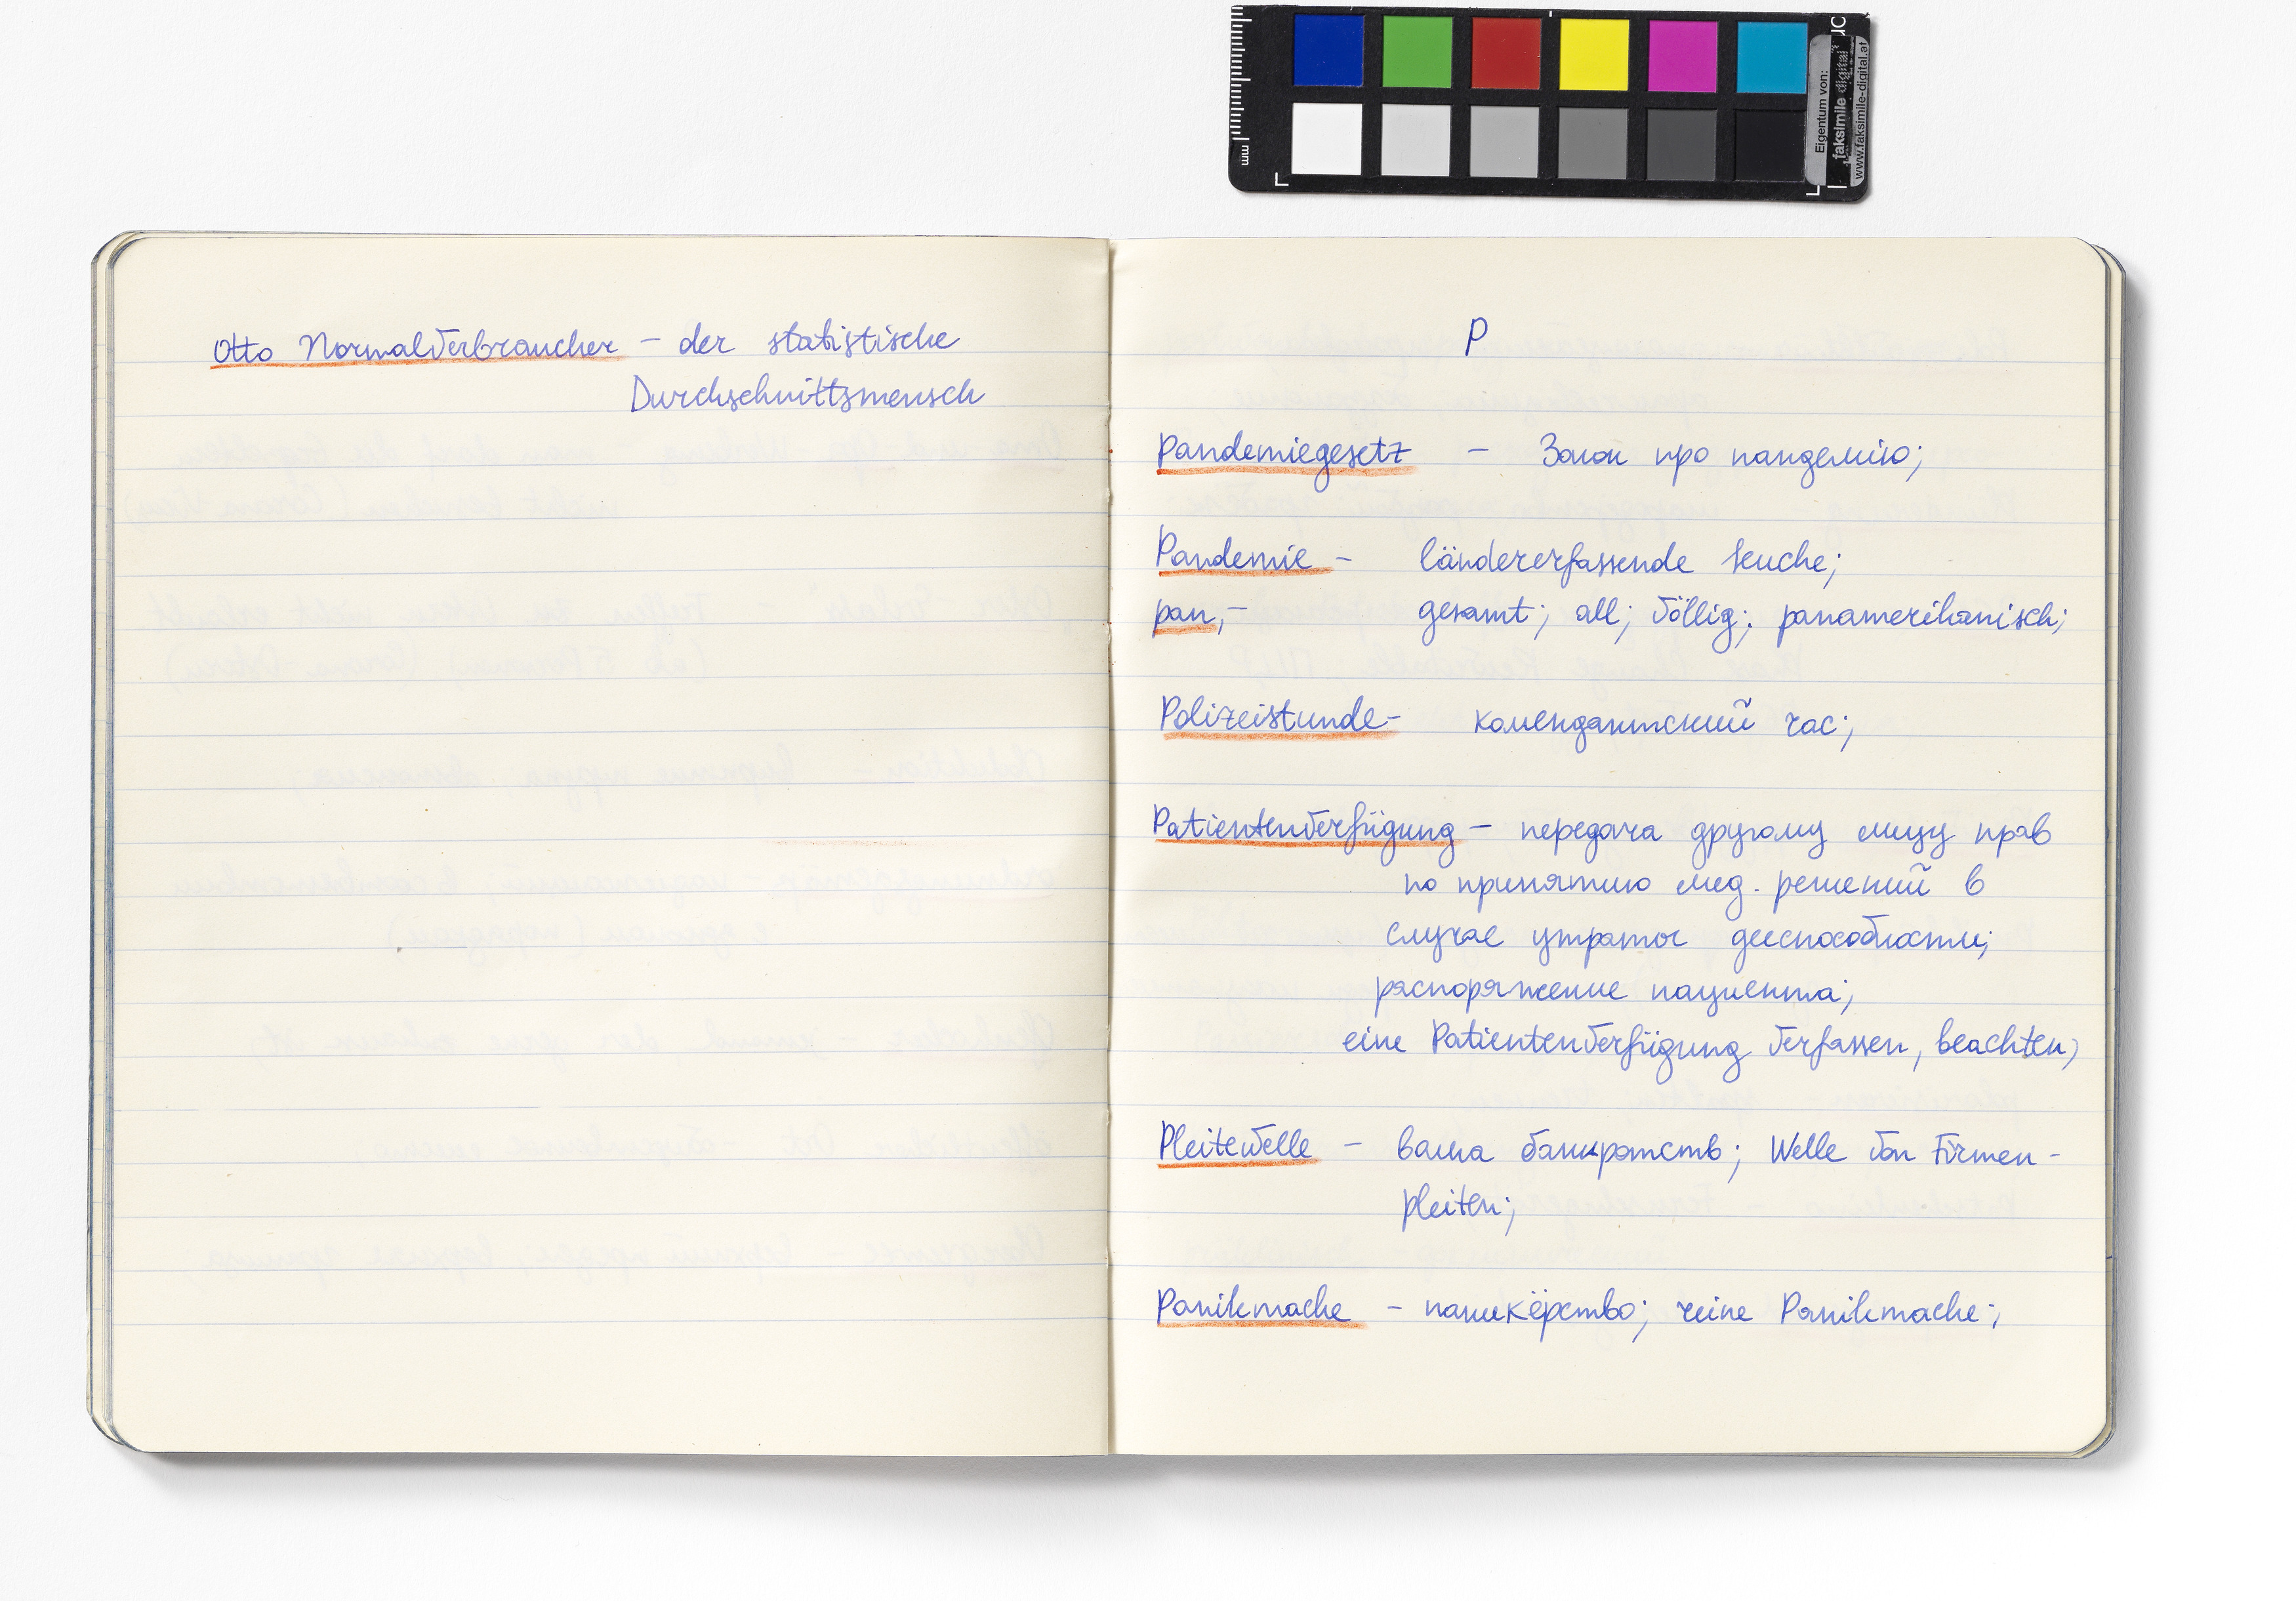 Otto Normalverbraucher – der statistische
Durchschnittsmensch
P
Pandemiegesetz – Закон про пандемію;
Pandemie – ländererfassende Seuche;
pan,- gesamt; all; völlig; panamerikanisch;
Polizeistunde- комендантский час;
Patientenverfügung – передача другому лицу прав
по принятию мед. решений в
случае утраты дееспособности;
распоряжение пациента;
eine Patientenverfügung verfassen, beachten;
Pleitewelle – волна банкротств; Welle von Firmen-
pleiten;
Panikmache – паникёрство; reine Panikmache;
mm
Eigentum von:
faksimile digital
www.faksimile-digital.at